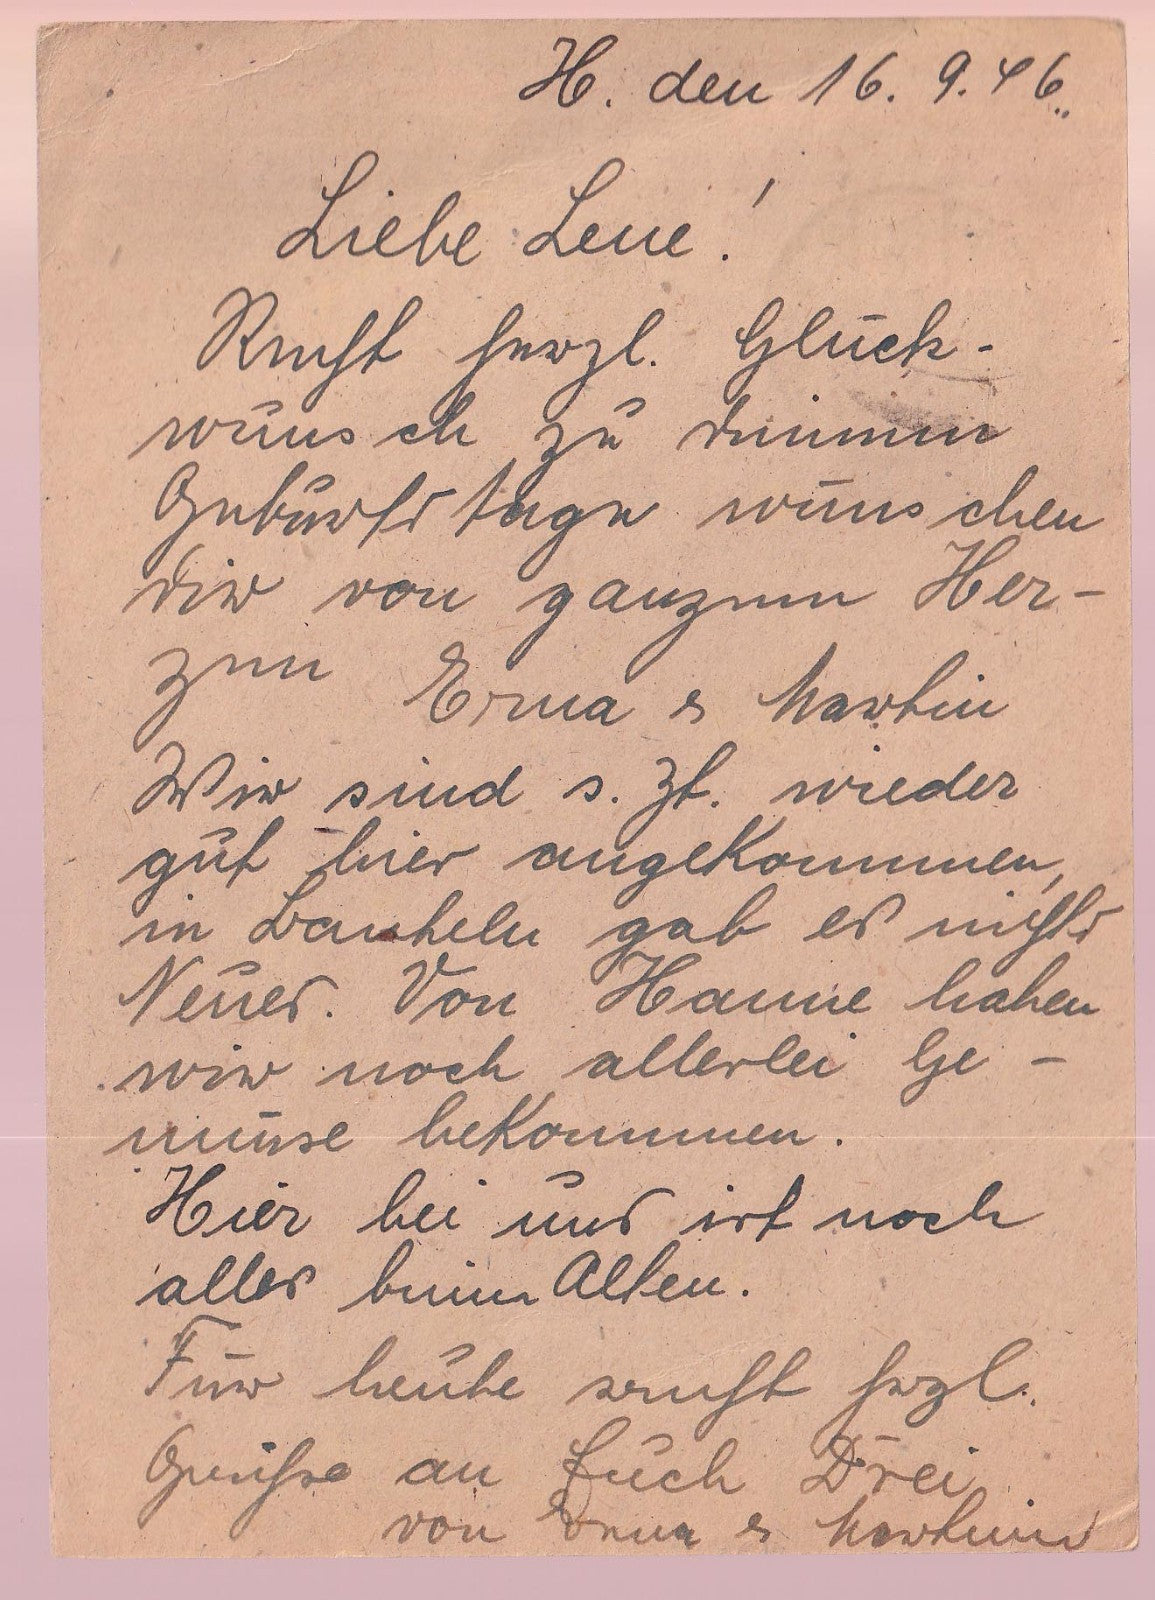 H. den 16. 9. 46.
Liebe Lene!
Recht herzl. Glück-
wünsch zu deinem
Geburtstage wünschen
dir von ganzem Her-
zen Erna & Martin
Wir sind s. Zt. wieder
gut hier angekommen,
in gab es nichts
Neues. Von Hanne haben
wir noch allerlei Ge-
müse bekommen.
Hier bei uns ist noch
alles beim Alten.
Für heute recht hrzl.
Grüsse an Euch Drei
von Erna & Martin